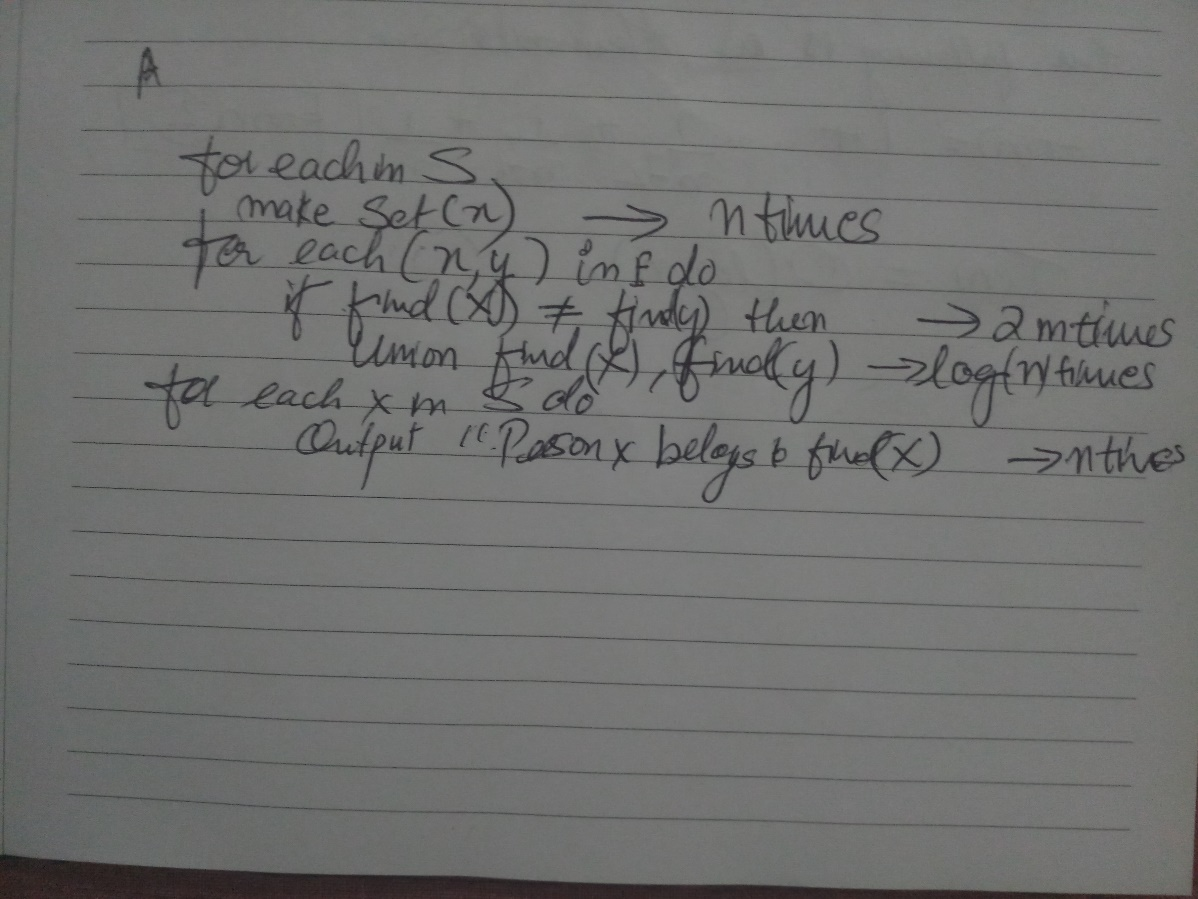 A
for each in S
make Set(x) → n times
for each (x,y) in E do
if find(x) ≠ find(y) then → 2m times
Union find(x), find(y) → log(n) times
for each x in S do
Output "Person x belogs to find(x) → n times